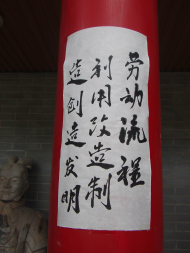 劳动流程
利用改造制
造创造发明